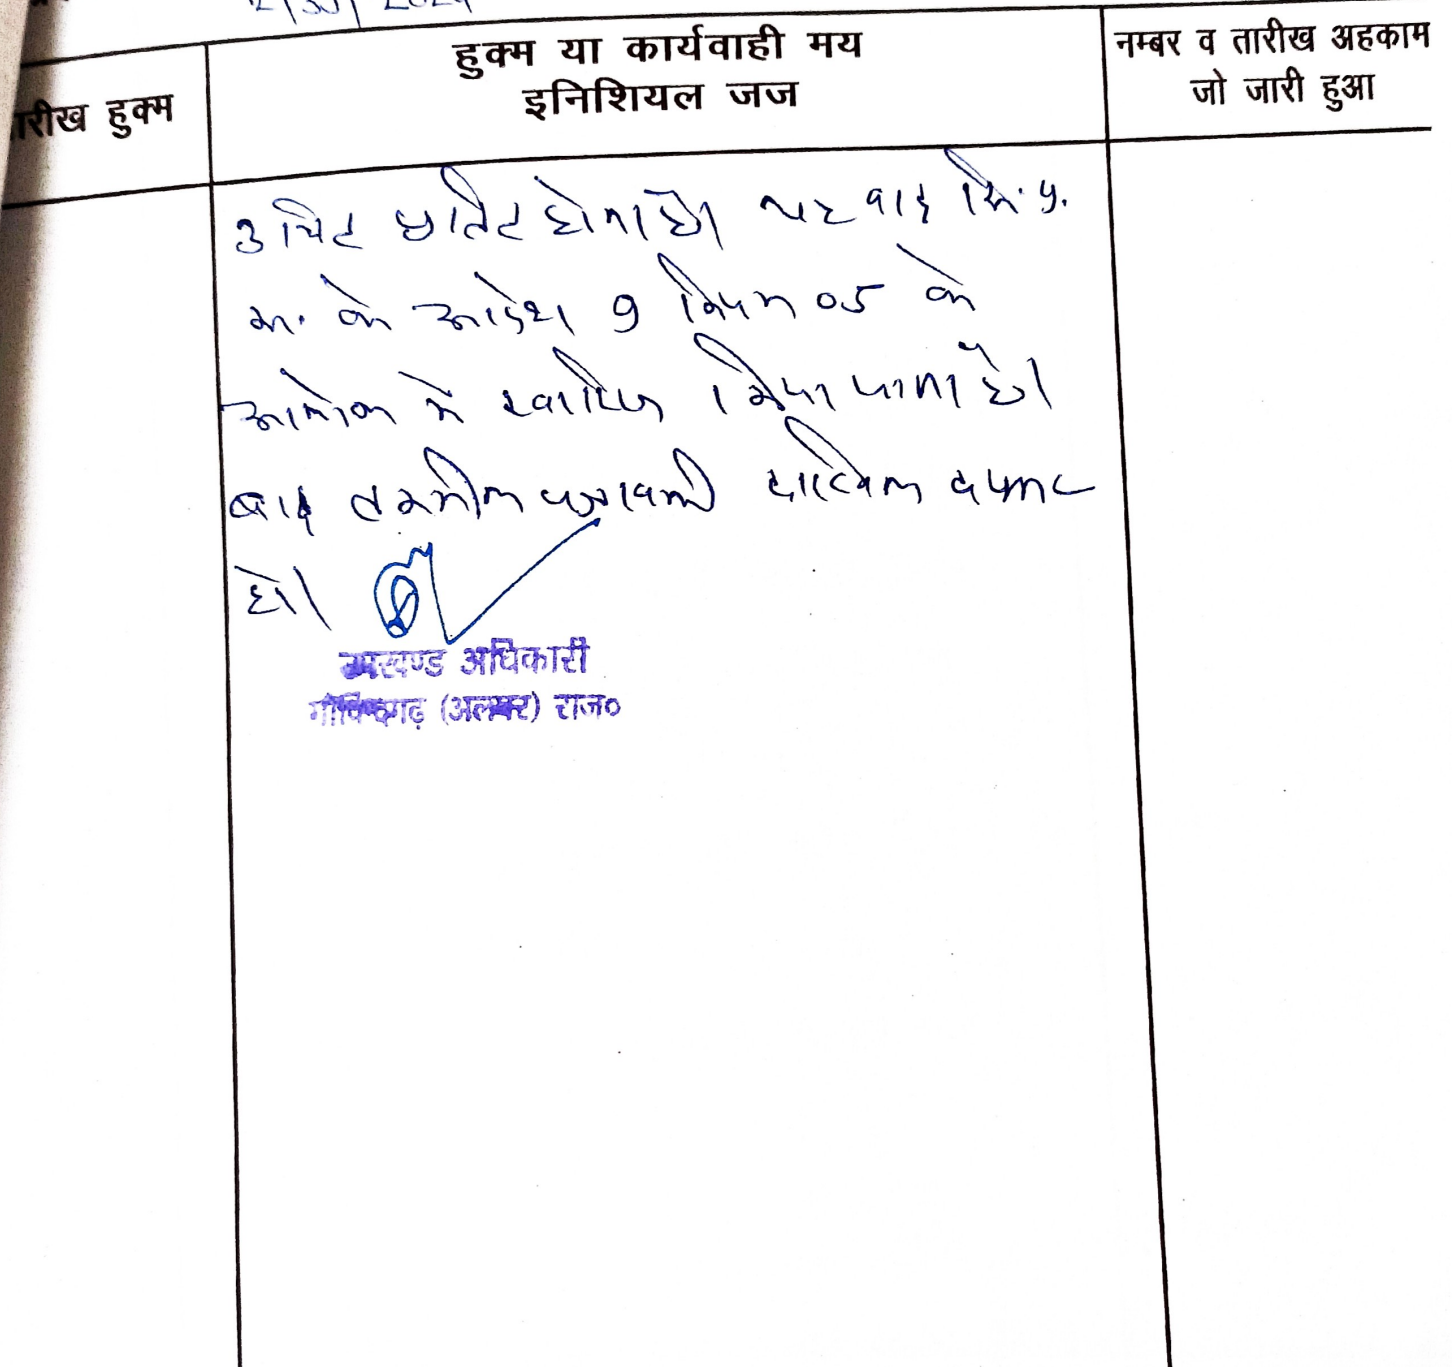 तारीख हुक्म
हुक्म या कार्यवाही मय
इनिशियल जज
नम्बर व तारीख अहकाम
जो जारी हुआ
उचित प्रतित होता है। अतः वाद सि. प्र.
सं. के आदेश 9 नियम 05 के
आलोक में खारिज किया जाता है।
बाद तकमील पत्रावली दाखिल दफ्तर
हो।
उपखण्ड अधिकारी
गोविन्दगढ़ (अलवर) राज०